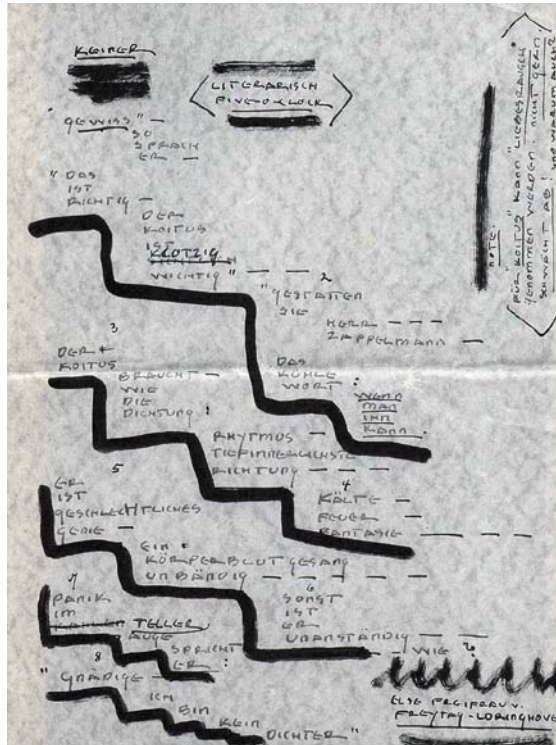 KEINER
LITERARISCH
FIVE-O-CLOCK
"GEWISS" —
SO
SPRACH
ER —
"DAS
IST
RICHTIG —
DER
KOITUS
IST
KLOTZIG
WICHTIG" — — —
2
"GESTATTEN
SIE
HERR — — —
ZAPPELMANN —
DAS
KÜHLE
WORT:
WENN
MAN
IHN
KANN.
3
DER
KOITUS
BRAUCHT —
WIE
DIE
DICHTUNG:
RHYTMOS —
TIEFINNERLICHSTE
RICHTUNG — — —
4
KÄLTE —
FEUER —
FANTASIE — — — —
5
ER
IST
GESCHLECHTLICHES
GENIE —
EIN
KÖRPERBLUTGESANG
UNBÄNDIG — — — — —
6
SONST
IST
ER
UNANSTÄNDIG — — —
— — WIE
7
PANIK
IM
TELLER
AUGE
SPRICHT
ER:
8
"GNÄDIGE —
ICH
BIN
KEIN
DICHTER"
ELSE FREIFRAU V.
FREYTAG-LORINGHOVE
NOTE:
FÜR "KOITUS" KANN "LIEBESRAUSCH"
GENOMMEN WERDEN. NICHT GERN.
SCHWÄCHT AB! UND WARUM AUCH?